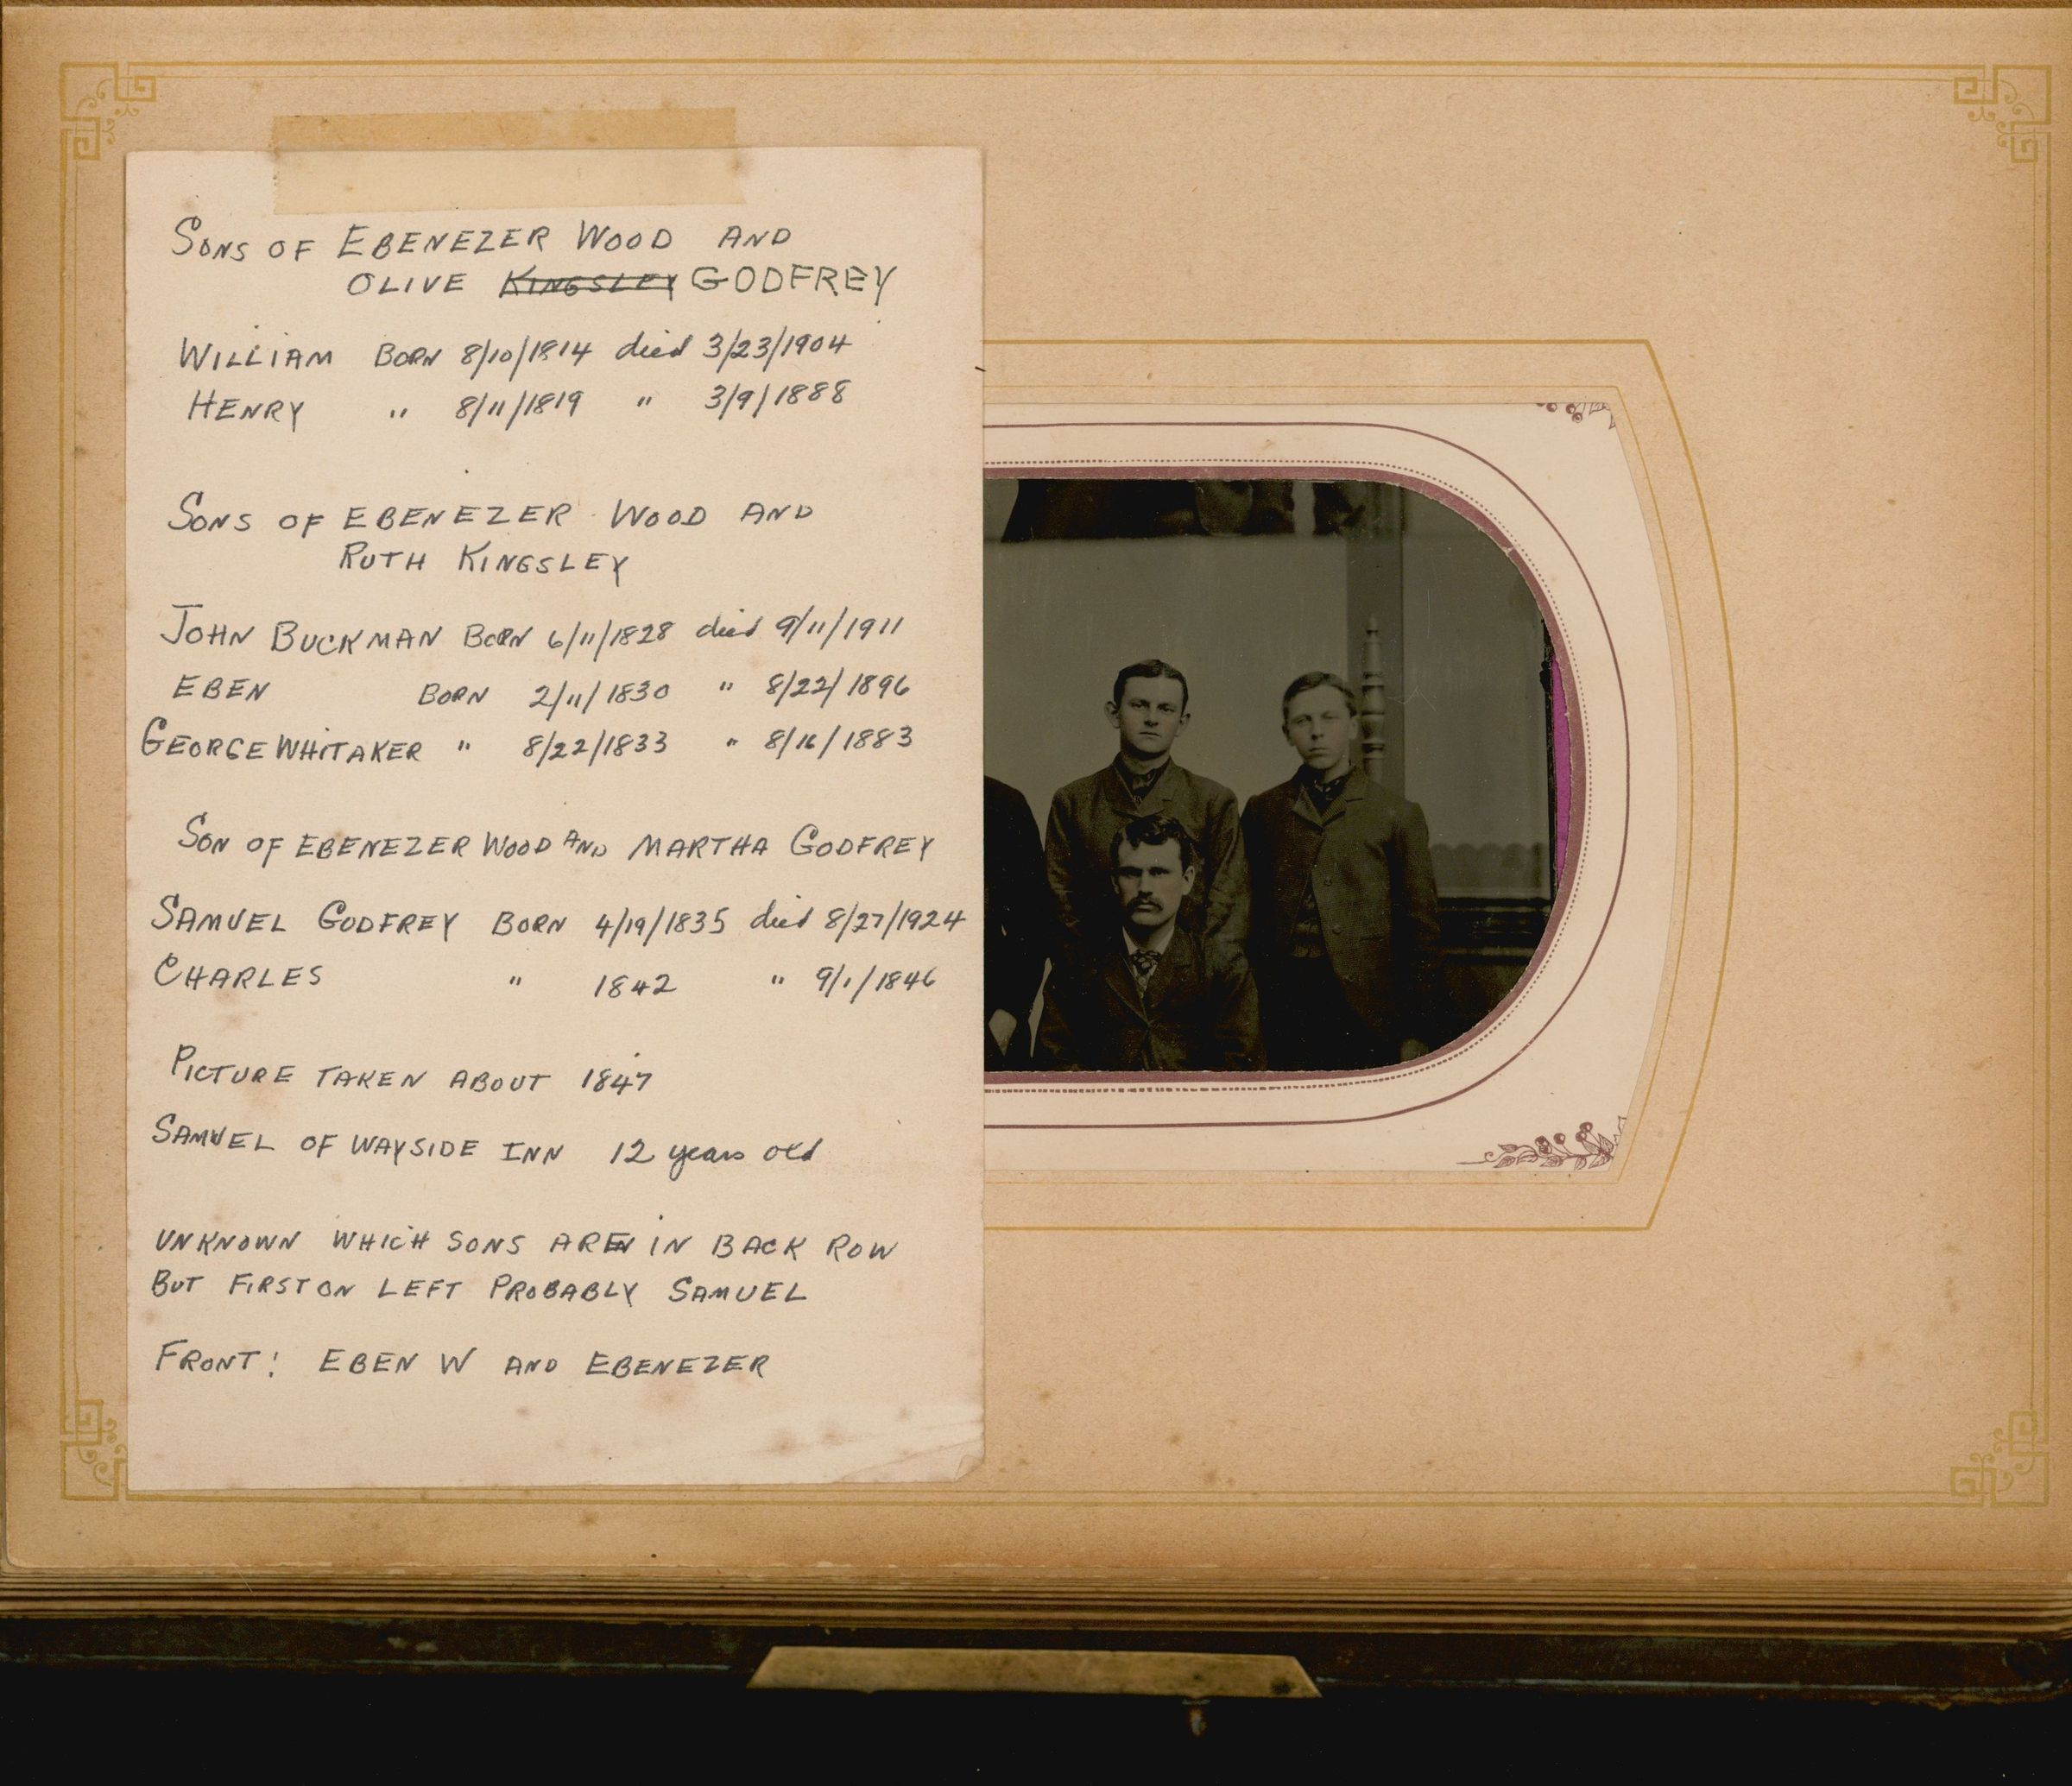 SONS OF EBENEZER WOOD AND
OLIVE KINGSLEY GODFREY
WILLIAM BORN 8/10/1814 died 3/23/1904
HENRY " 8/11/1819 " 3/9/1888
SONS OF EBENEZER WOOD AND
RUTH KINGSLEY
JOHN BUCKMAN BORN 6/11/1828 died 9/11/1911
EBEN BORN 2/11/1830 " 8/22/1896
GEORGE WHITAKER " 8/22/1833 " 8/16/1883
SON OF EBENEZER WOOD AND MARTHA GODFREY
SAMUEL GODFREY BORN 4/19/1835 died 8/27/1924
CHARLES " 1842 " 9/1/1846
PICTURE TAKEN ABOUT 1847
SAMUEL OF WAYSIDE INN 12 years old
UNKNOWN WHICH SONS ARE IN BACK ROW
BUT FIRST ON LEFT PROBABLY SAMUEL
FRONT: EBEN W AND EBENEZER